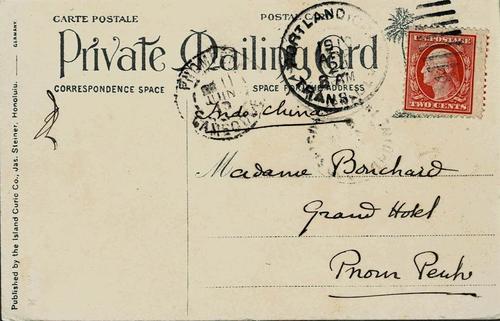 CARTE POSTALE
POSTAL CARD
Private Mailing Card
CORRESPONDENCE SPACE
SPACE FOR THE ADDRESS
PORTLAND
TRANSIT
TWO CENTS
Indo-China
Madame Bouchard
Grand Hotel
Pnom Penh
Published by the Island Curio Co., Jas. Steiner, Honolulu.
GERMANY